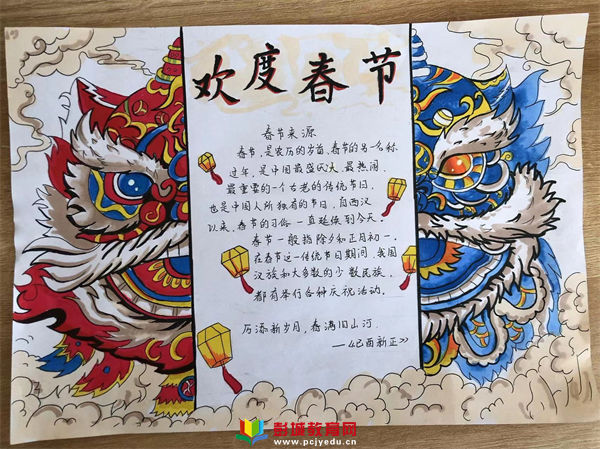 欢度春节
春节来源
春节，是农历的岁首，春节的另一名称
过年，是中国最盛大、最热闹、
最重要的一个古老的传统节日，
也是中国人所独有的节日，自西汉
以来，春节的习俗一直延续到今天。
春节一般指除夕和正月初一，
在春节这一传统节日期间，我国
汉族和大多数的少数民族，
都有举行各种庆祝活动。
历添新岁月，春满旧山河
—《己酉新正》
彭城教育网
www.pcjyedu.cn